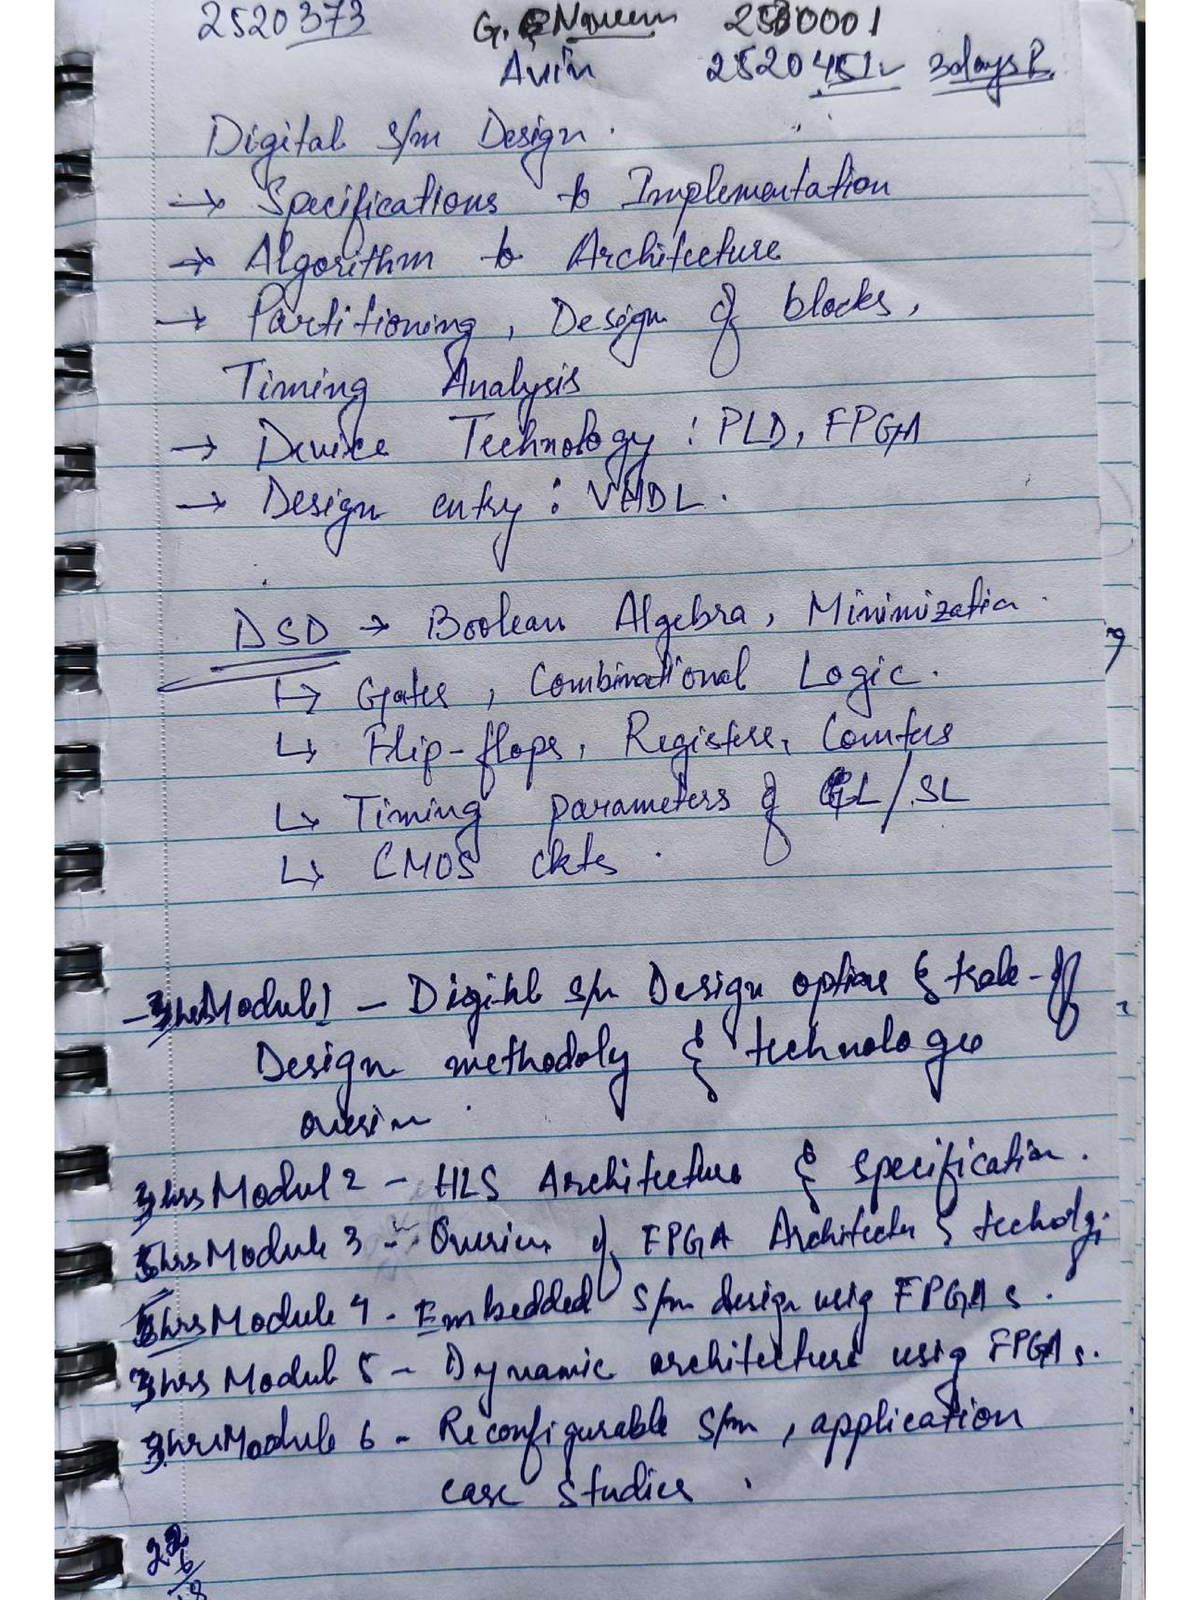 2520373 G. Naveen 2530001
Avin 2520451 3days P.
Digital s/m Design.
→ Specifications to Implementation
→ Algorithm to Architecture
→ Partitioning, Design of blocks,
Timing Analysis
→ Device Technology : PLD, FPGA
→ Design entry : VHDL.
DSD → Boolean Algebra, Minimization.
↳ Gates, Combinational Logic.
↳ Flip-flops, Registers, Counters
↳ Timing parameters of CL/SL
↳ CMOS ckts.
3hrs Module 1 – Digital s/m Design options & trade-off
Design methodoly & technologies
overview.
3hrs Modul 2 – HLS Architecture & specification.
5hrs Module 3 – Overview of FPGA Architecture & technology
Module 4 - Embedded s/m design using FPGAs.
3hrs Modul 5 – Dynamic architecture using FPGAs.
3hrs Module 6 – Reconfigurable s/m, application
case studies.
22
6
18